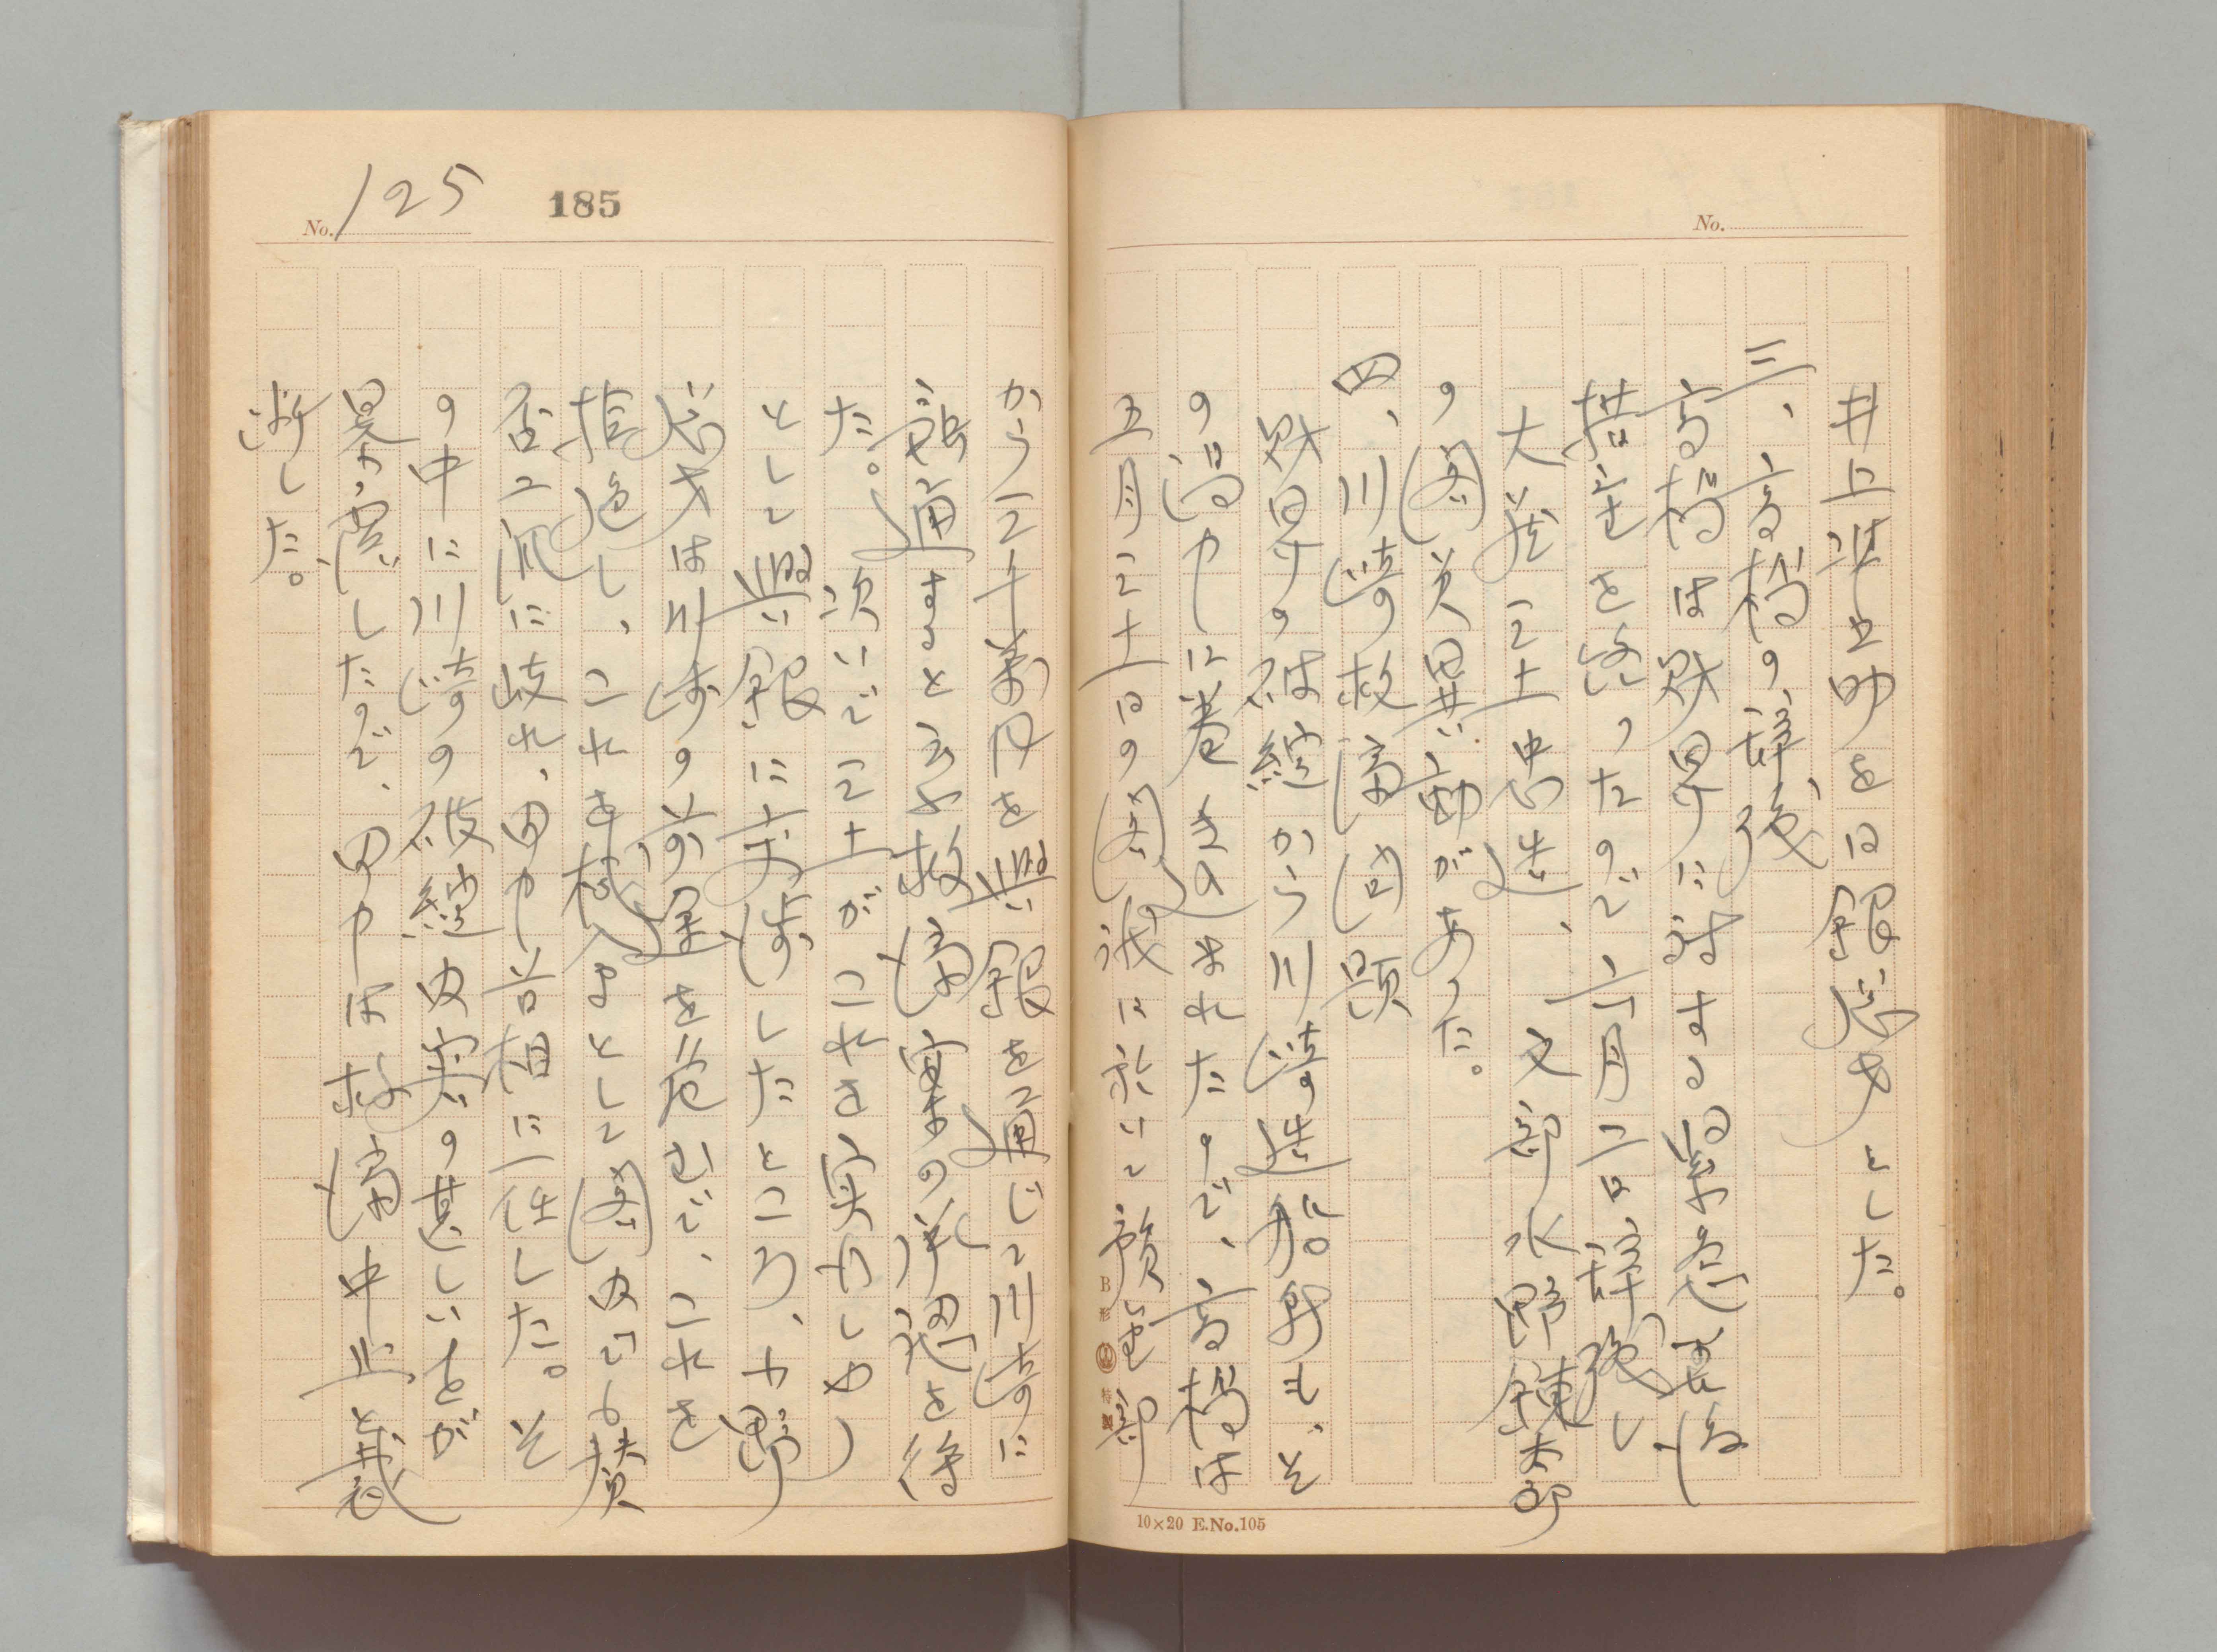 No.
井上準之助を日銀総才とした。
三、高橋の辞職
高橋は財界に対する緊急善後
措置を終ったので六月二日辞職し
大蔵 三土忠造、文部 水野錬太郎
の閣員異動があった。
四、川崎救済問題
財界の破綻から川崎造船所も、そ
の渦中に巻きこまれたので、高橋は
五月二十五日の閣議に於いて預金部
B形 特製
10×20 E.No.105
No. 125
185
から三千萬円を興銀を通じて川崎に
融通すると云ふ救済案の承認を得
た。次いで三土がこれを実行しやう
として興銀に交渉したところ、小野
総才は川崎の前途を危んで、これを
拮逸し、これを機会として閣内でも賛
否二派に岐れ、田中首相に一任した。そ
の中に川崎の破綻内容の甚しいことが
暴露したので、田中は救済中止と裁
断した。